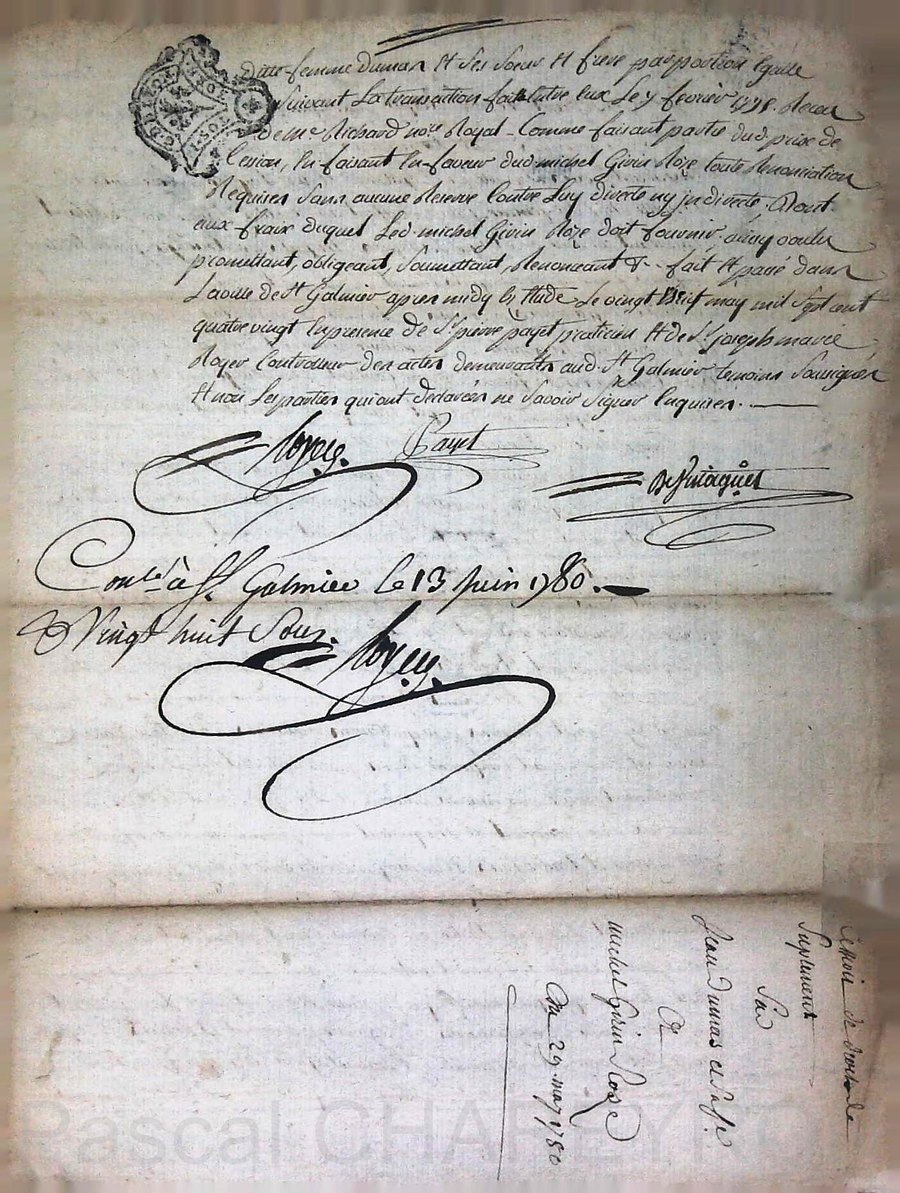 ditte femme dumas Et ses soeur Et frere par portion Egalle
suivant La transaction faitte entre eux Le 7 fevrier 1778. Recue
de me. Richard nore. Royal - Comme faisant partie dud. prix de
Cession, En faisant En faveur dud. michel Girin Roze toute Renonciation
Requises sans aucune Reserve Contre Luy directe ny jndirecte.
aux fraix duquel Led. michel Girin Roze doit fournir. ainsy voulu
promettant, obligeant, soumettant, Renonceant &. fait Et passé dans
La ville de St. Galmier apres midy En Etude Le vingt neuf may mil sept cent
quatre vingt En presence de Sr. pierre payet praticien Et de Sr. joseph marie
Royer Controlleur des actes demeurants aud. St. Galmier temoins soussignés
Et non Les parties qui ont declarées ne savoir signer Enquises.
Royer. Payet
Conlé. à St. Galmier le 13 Juin 1780.
Vingt huit Sous.
Royer.
Cession de droits de
Suplement
Par
Jean Dumas et Sa fe.
A
michel Girin Roze
Du 29. may 1780
Pascal CHAREYRON